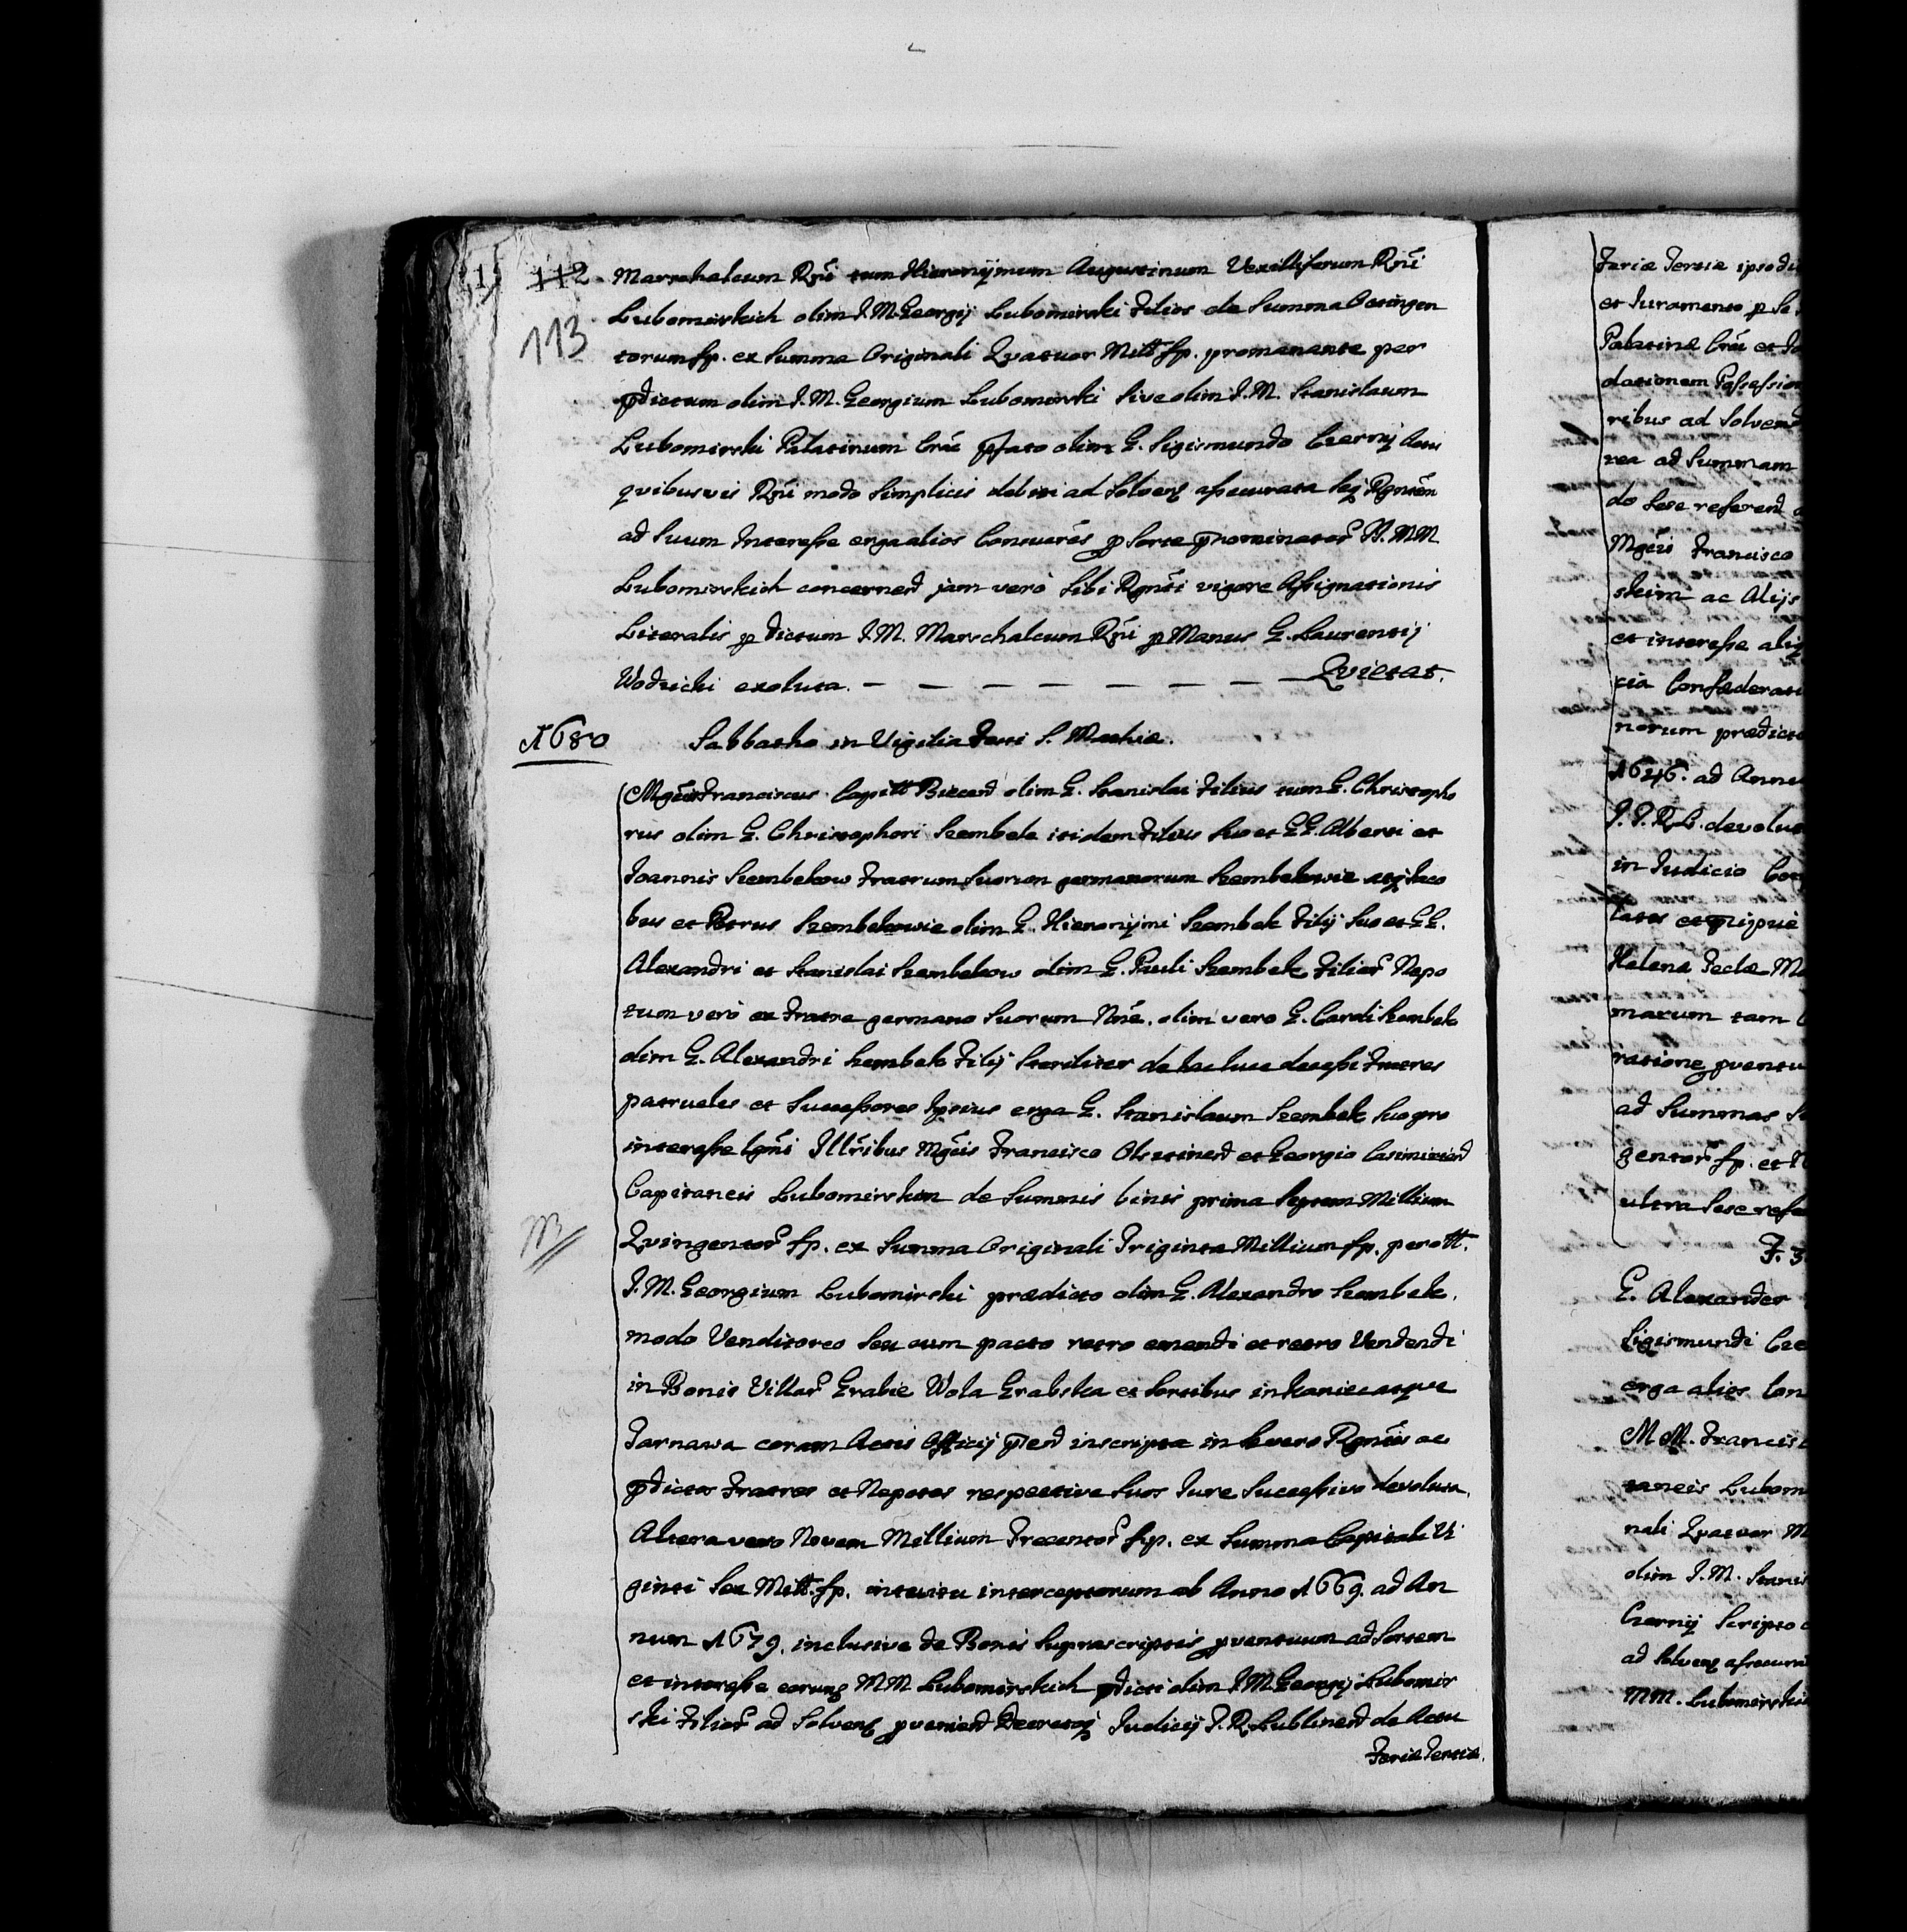 112. Marschalcum Rni tum Hieronijmum Augustinum Vexilliferum Rni
113 Lubomirskich olim I. M. Georgij Lubomirski Filios de Summa Octingen
torum fp. ex Summa Originali Qvatuor Mill fp. promanante per
pdictum olim I. M. Georgium Lubomirski Sive olim I. M. Stanislaum
Lubomirski Palatinum Crae pfato olim G. Sigismundo Czernij Actis
qvibusvis Rni modo Simplicis debiti ad Solvend assecurata
ad Suum Interesse erga alios p Sorte pnominator I. MM.
Lubomirskich concernen jam vero Sibi Rgnti vigore Assignationis
Literalis p dictum I. M. Marschalcum Rni p Manus G. Laurentij
Wodzicki exoluta. — — — — — — — — Qvietat.
1680 Sabbatho in Vigilia Festi S. Mathiae.
Mgcus Franciscus Capitt Biecen olim G. Stanislai Filius tum G. Christopho
rus olim G. Christophori Szembek itidem Filius Suo et GG. Alberti et
Joannis Szembekow Fratrum Suorum germanorum Szembekowie atq Jaco
bus et Petrus Szembekowie olim G. Hieronijmi Szembek Filij Suo et GG.
Alexandri et Stanislai Szembekow olim G. Pauli Szembek Filior Nepo
tum vero ex Fratre germano Suorum Nne. olim vero G. Caroli Szembek
olim G. Alexandri Szembek Filij Steriliter de hac luce decessi Fratres
patrueles et Successores Ipsius erga G. Stanislaum Szembek Suo pro
interesse Illribus Mgcis Francisco Olsztinen et Georgio Casimirien
Capitaneis Lubomirskim de Summis binis prima Septem Millium
Qvingentor fp. ex Summa Originali Triginta Millium fp. per ott.
I. M. Georgium Lubomirski praedicto olim G. Alexandro Szembek,
modo Venditoreo Seu cum pacto retro emendi et retro Vendendi
in Bonis Villar Grabie Wola Grabska et Sortibus in Kaniec atque
Tarnawa coram Actis Officij pen inscripta in Severo Rgntis ac
pdictos Fratres et Nepotes respective Suos Jure Successivo devoluta,
Altera vero Novem Millium Trecentor fp. ex Summa Capitali Vi
ginti Sex Mill. fp. intuitu interceptorum ab Anno 1669. ad An
num 1679. inclusive de Bonis Suprascriptis pventuum ad Sortem
et interesse eorung MM Lubomirskich pdicti olim I. M. Georgij Lubomir
ski Filior ad Solvend pvenien Decretoq Iudicij T. R. Lublinen de Actu
Feriae Tertiae.
Feriae Tertiae ipso di
et Iuramento p Se
Palatinae Crae et
dationem Possession
ribus ad Solvend
rea ad Summam
do Sese referend
Mgcis Francisco
skim ac Alijs
et interesse aliq
cia Confoederati
norum praedicto
1646. ad Annu
I. T. R. L. devolut
in Iudicio
latos et pcipue
Helena Tecla
marum tam
ratione pventu
ad Summas
gentor fp. et
ultra Sese refe
F. 3
G. Alexander
Sigismundi Cze
erga alios Con
MM. Francis
taneis Lubom
nali Qvatuor M
olim I. M. Stanis
Czernij Scripto
ad Solvend assecurat
MM. Lubomirski